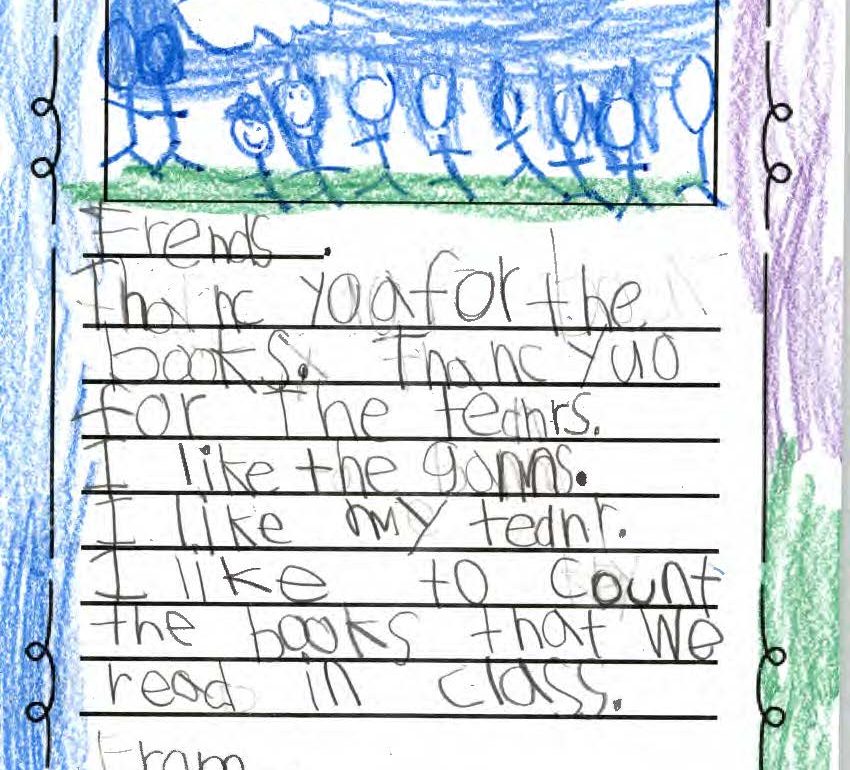 Frends.
Thanc yaa for the
books. Thanc yuo
for The teahrs.
I like the gonns.
I like my teanr.
I like to count
the books that We
read in class.
From